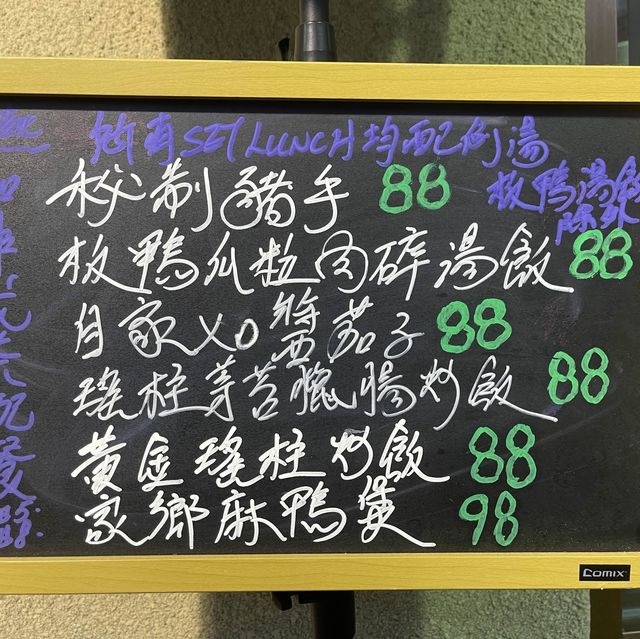 所有SET LUNCH均配例湯
板鴨湯飯
除外
秘制豬手 88
板鴨瓜粒肉碎湯飯 88
自家XO醬茄子 88
瑤柱芥苔臘腸炒飯 88
黃金瑤柱炒飯 88
家鄉麻鴨煲 98
COMIX